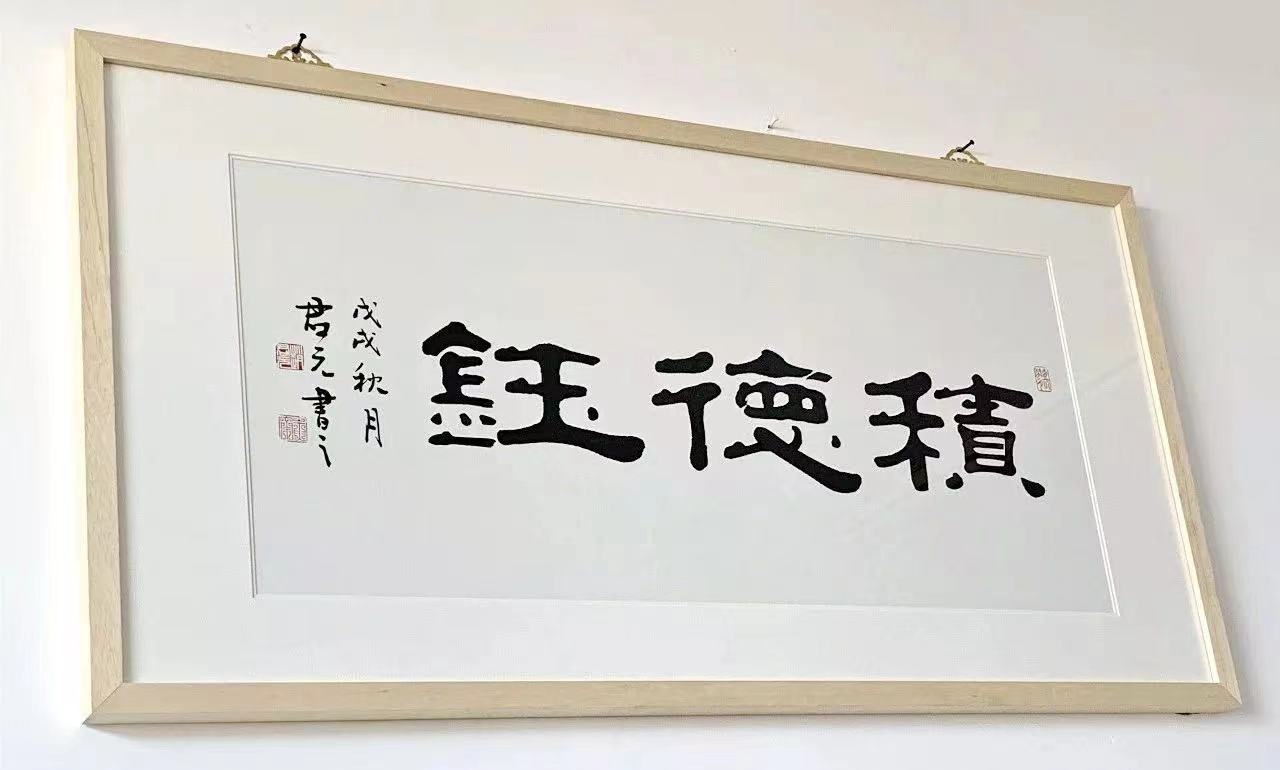 積德鈺
戊戌秋月
君元書之